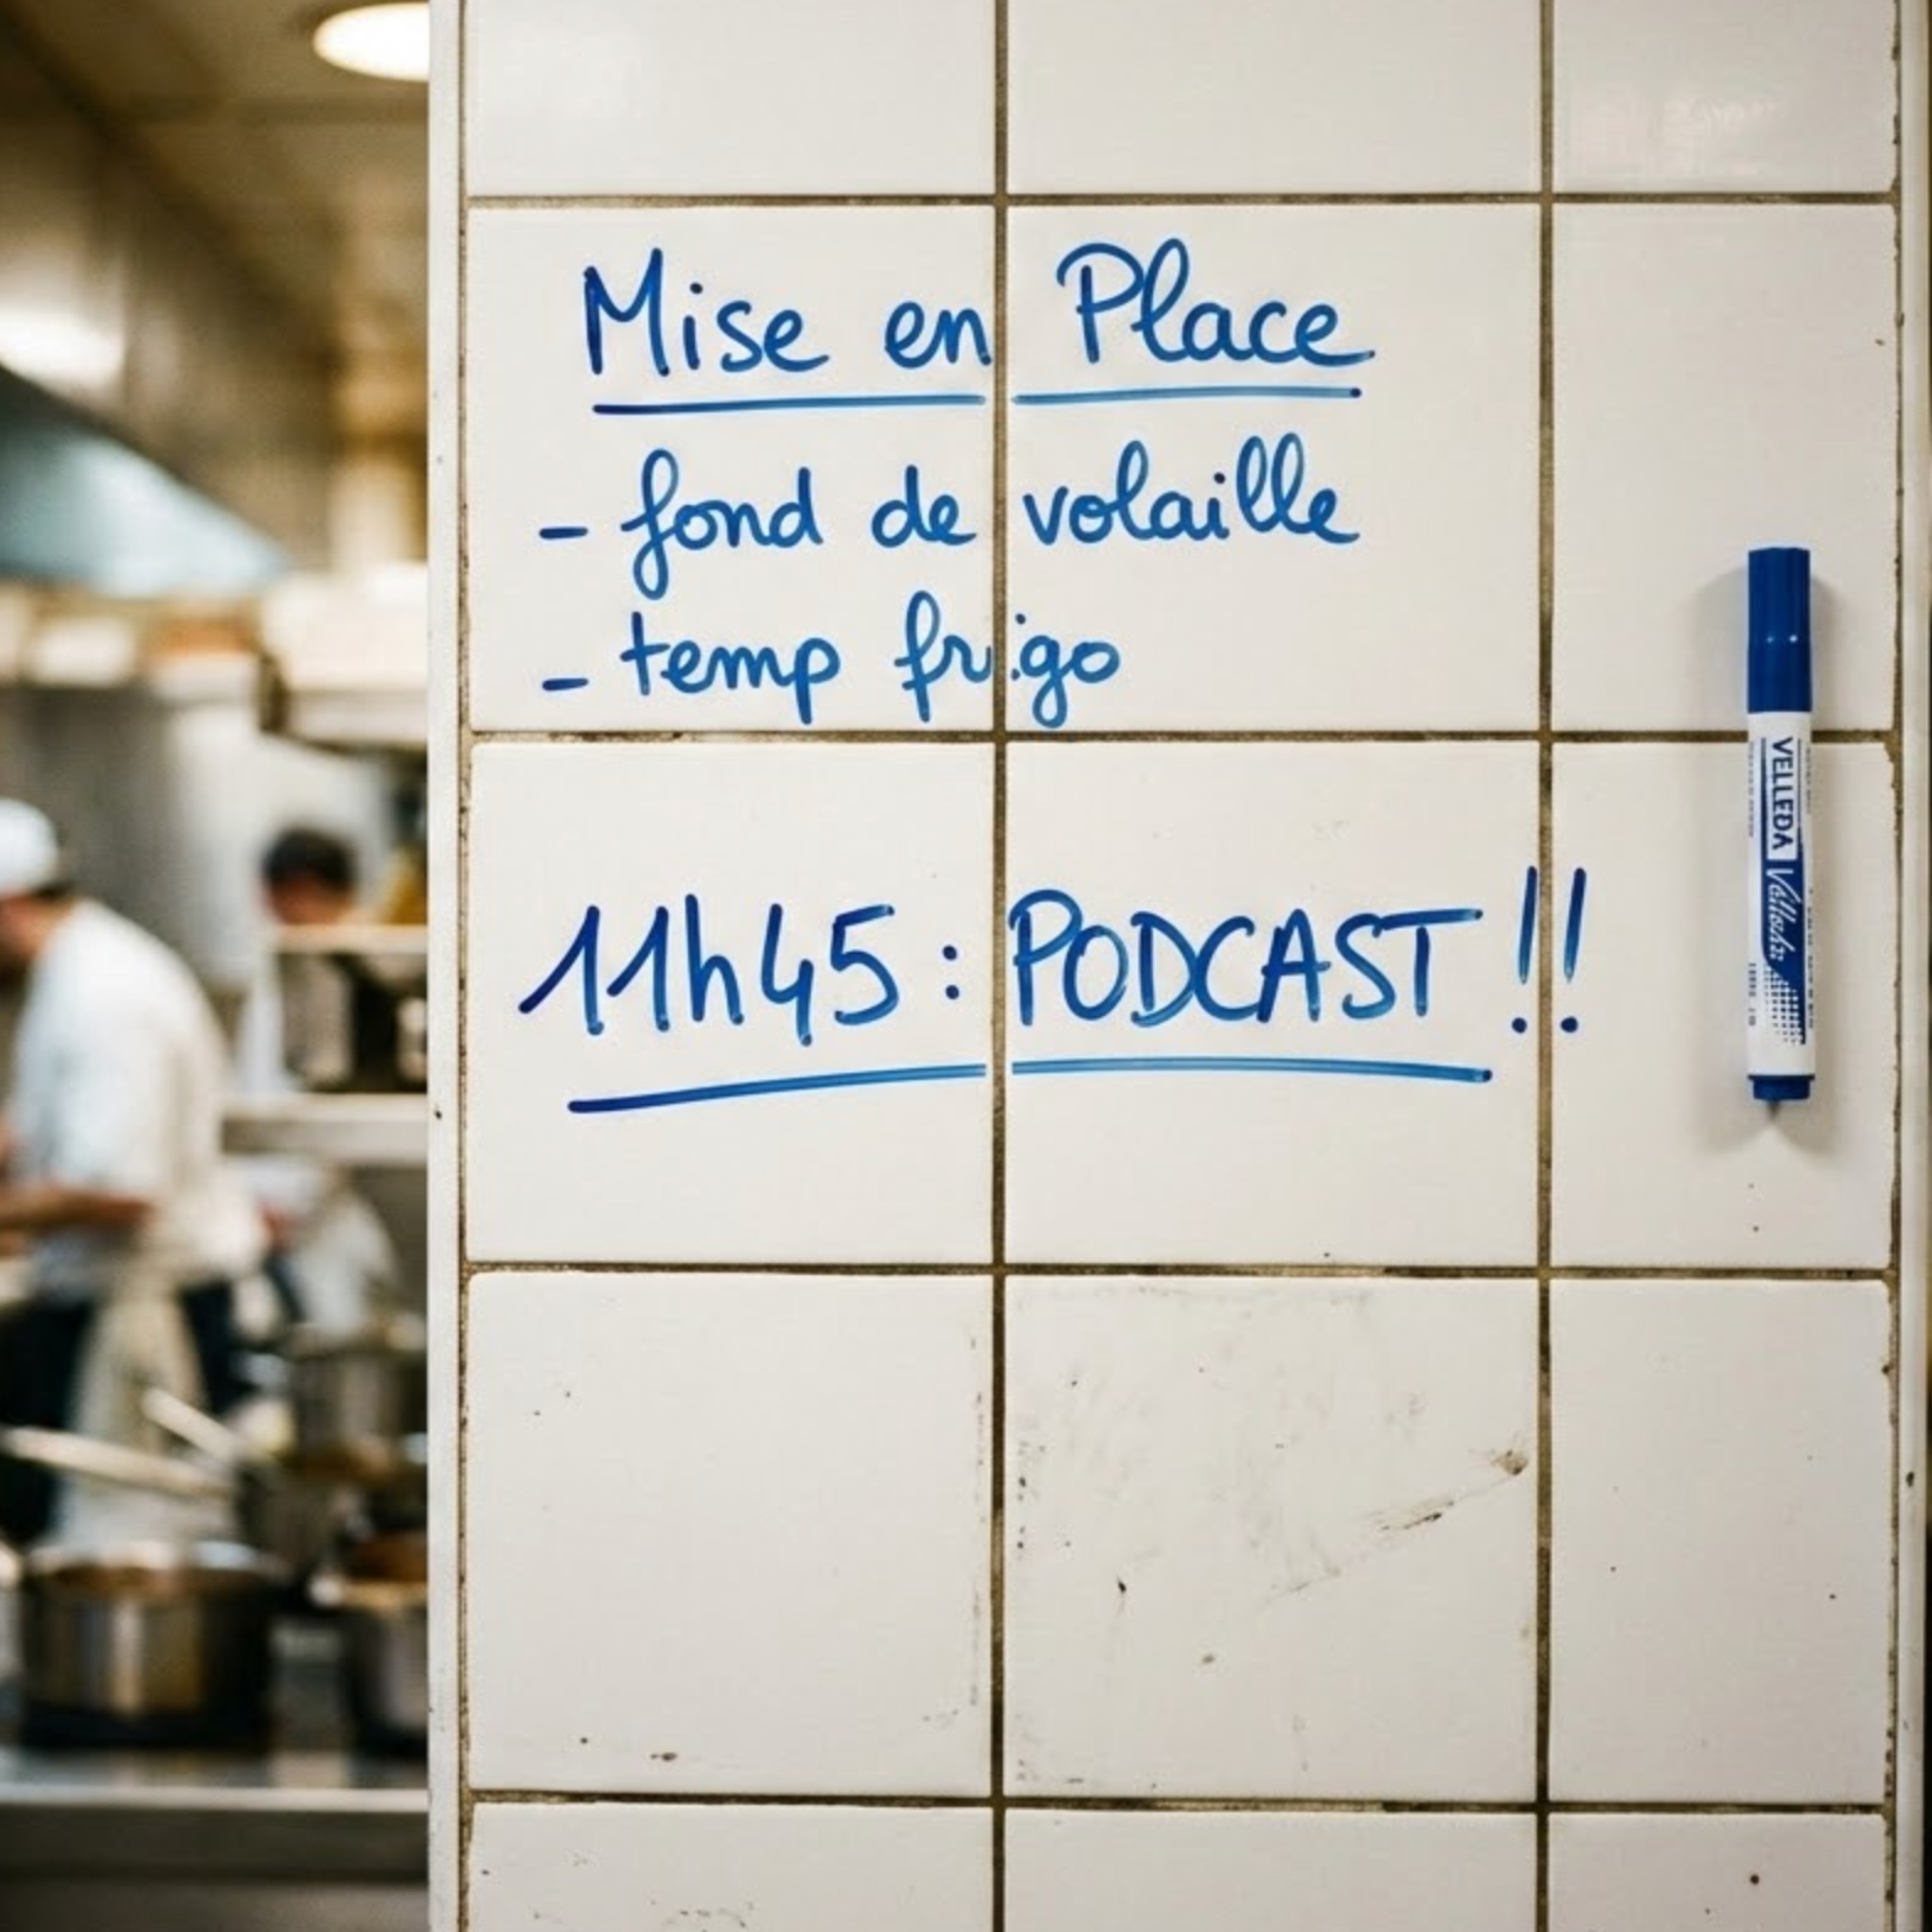 Mise en Place
- fond de volaille
- temp frigo
11h45 : PODCAST !!
VELLEDA